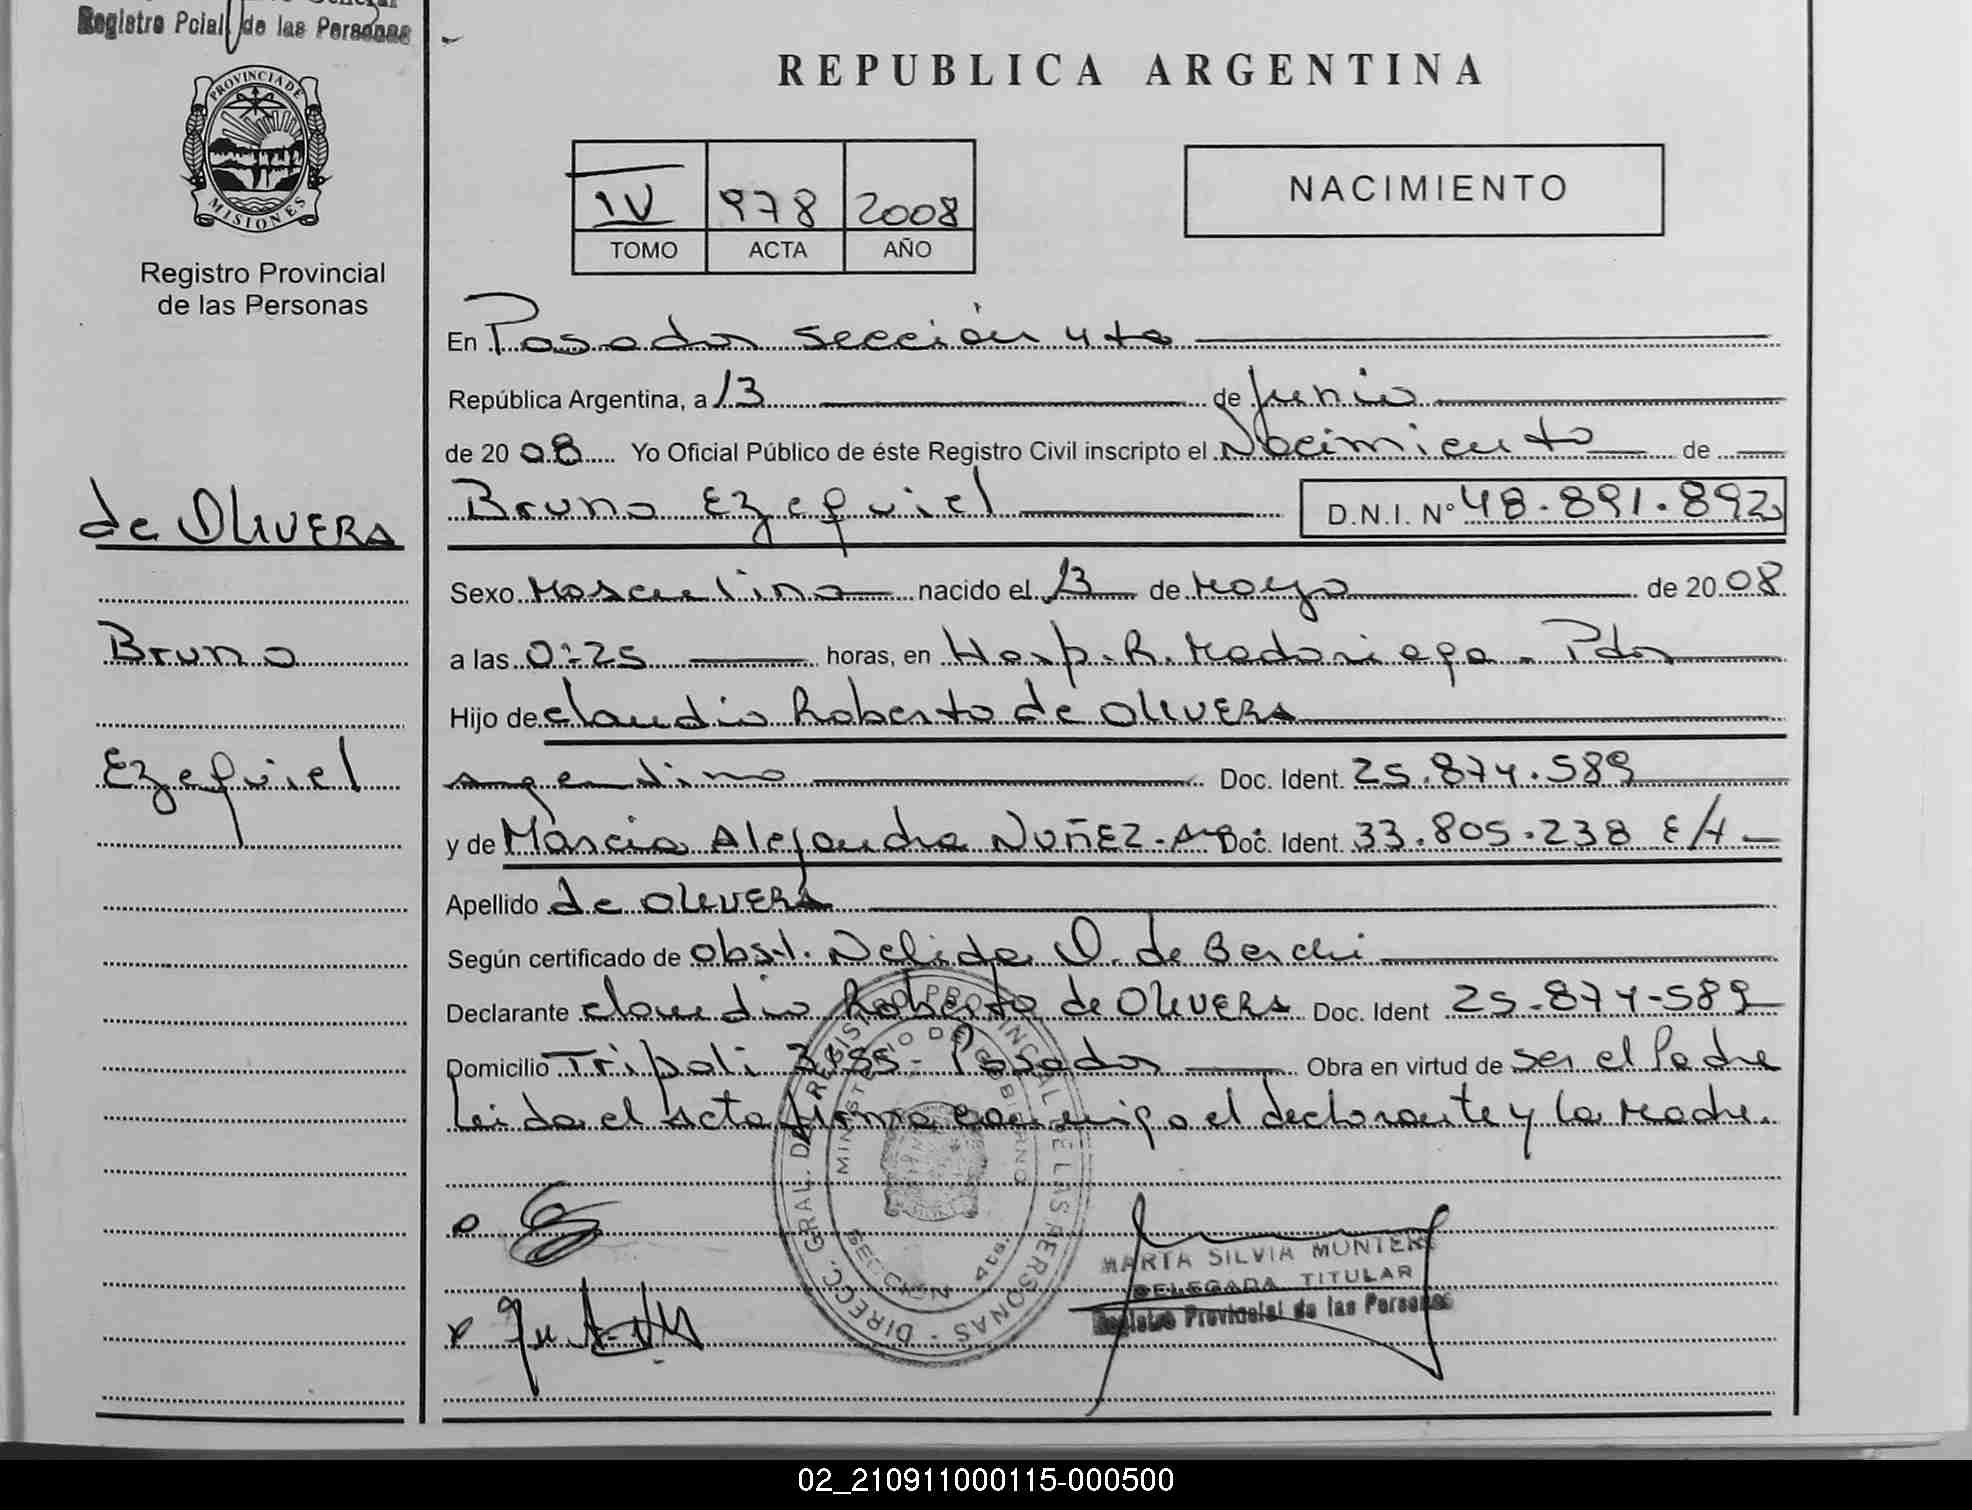 Registro Pcial. de las Personas
PROVINCIA DE
MISIONES
Registro Provincial
de las Personas
de OLIVERA
Bruno
Ezequiel
REPUBLICA ARGENTINA
IV 978 2008
TOMO ACTA AÑO
NACIMIENTO
En Posadas sección 4ta
República Argentina, a 13 de Junio
de 2008 Yo Oficial Público de éste Registro Civil inscripto el Nacimiento de
Bruno Ezequiel D.N.I. N° 48.891.892
Sexo Masculino nacido el 13 de Mayo de 2008
a las 0:25 horas, en Hosp. R. Madariaga - Pdas
Hijo de Claudio Roberto de OLIVERA
argentino Doc. Ident. 25.874.589
y de Marcia Alejandra NUÑEZ - A Doc. Ident. 33.805.238 E/A
Apellido de OLIVERA
Según certificado de obst. Nelida O. de Berchi
Declarante Claudio Roberto de OLIVERA Doc. Ident 25.874-589
Domicilio Tripoli 3855 - Posadas Obra en virtud de ser el Padre
Leida el Acta firma conmigo el declarante y la Madre.
DIRECC. GRAL. DE REGISTRO PROVINCIAL DE LAS PERSONAS
MINISTERIO DE GOBIERNO
SECCION 4ta.
MARTA SILVIA
DELEGADA TITULAR
Registro Provincial de las Personas
02_210911000115-000500